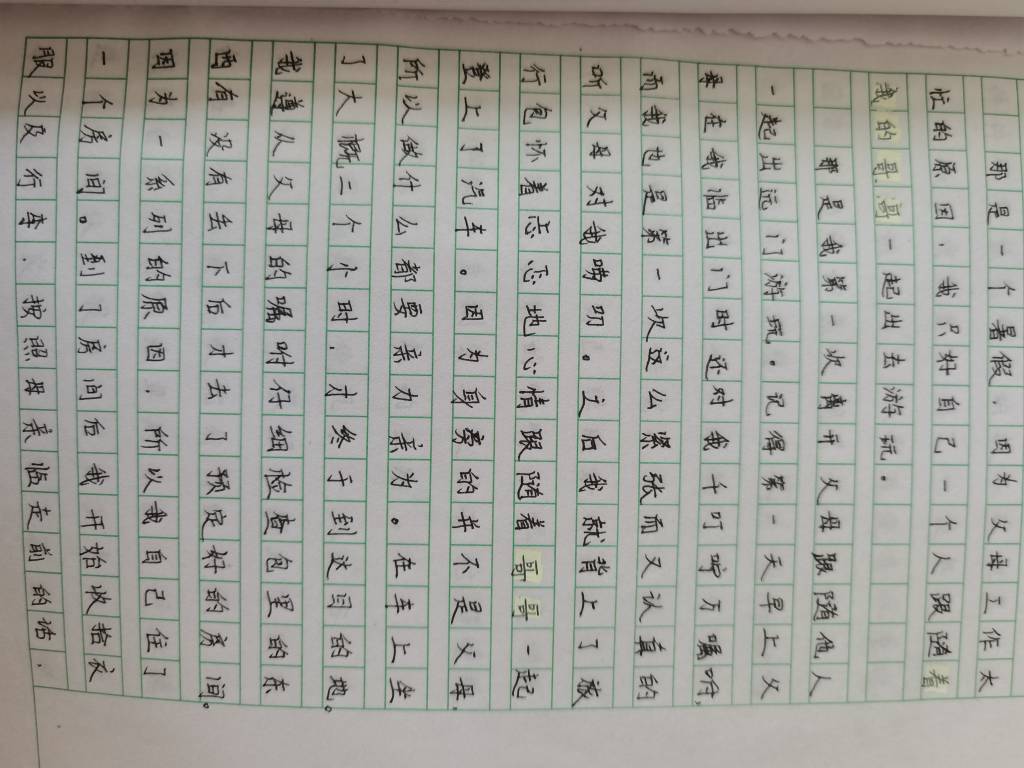 那是一个暑假，因为父母工作太
忙的原因，我只好自己一个人跟随着
我的哥哥一起出去游玩。
那是我第一次离开父母跟随他人
一起出远门游玩。记得第一天早上父
母在我临出门时还对我千叮咛万嘱咐，
而我也是第一次这么紧张而又认真的
听父母对我唠叨。之后我就背上了旅
行包怀着忐忑地心情跟随着哥哥一起
登上了汽车。因为身旁的并不是父母，
所以做什么都要亲力亲为。在车上坐
了大概二个小时，才终于到这目的地。
我遵从父母的嘱咐仔细检查包里的东
西有没有丢下后才去了预定好的房间。
因为一系列的原因，所以我自己住了
一个房间。到了房间后我开始收拾衣
服以及行李，按照母亲临走前的话，